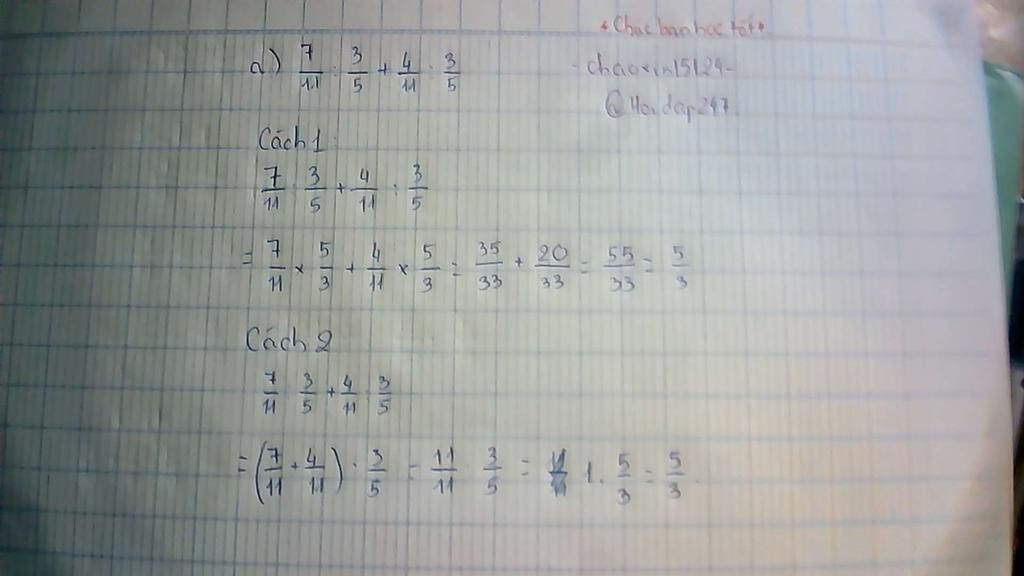 *Chúc bạn học tốt*
-chaoxin15124-
@Hoidap247.
a) 7/11 : 3/5 + 4/11 : 3/5
Cách 1:
7/11 : 3/5 + 4/11 : 3/5
= 7/11 × 5/3 + 4/11 × 5/3 = 35/33 + 20/33 = 55/33 = 5/3
Cách 2
7/11 : 3/5 + 4/11 : 3/5
= (7/11 + 4/11) : 3/5 = 11/11 : 3/5 = 1 . 5/3 = 5/3.